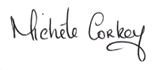 Michèle Corkey